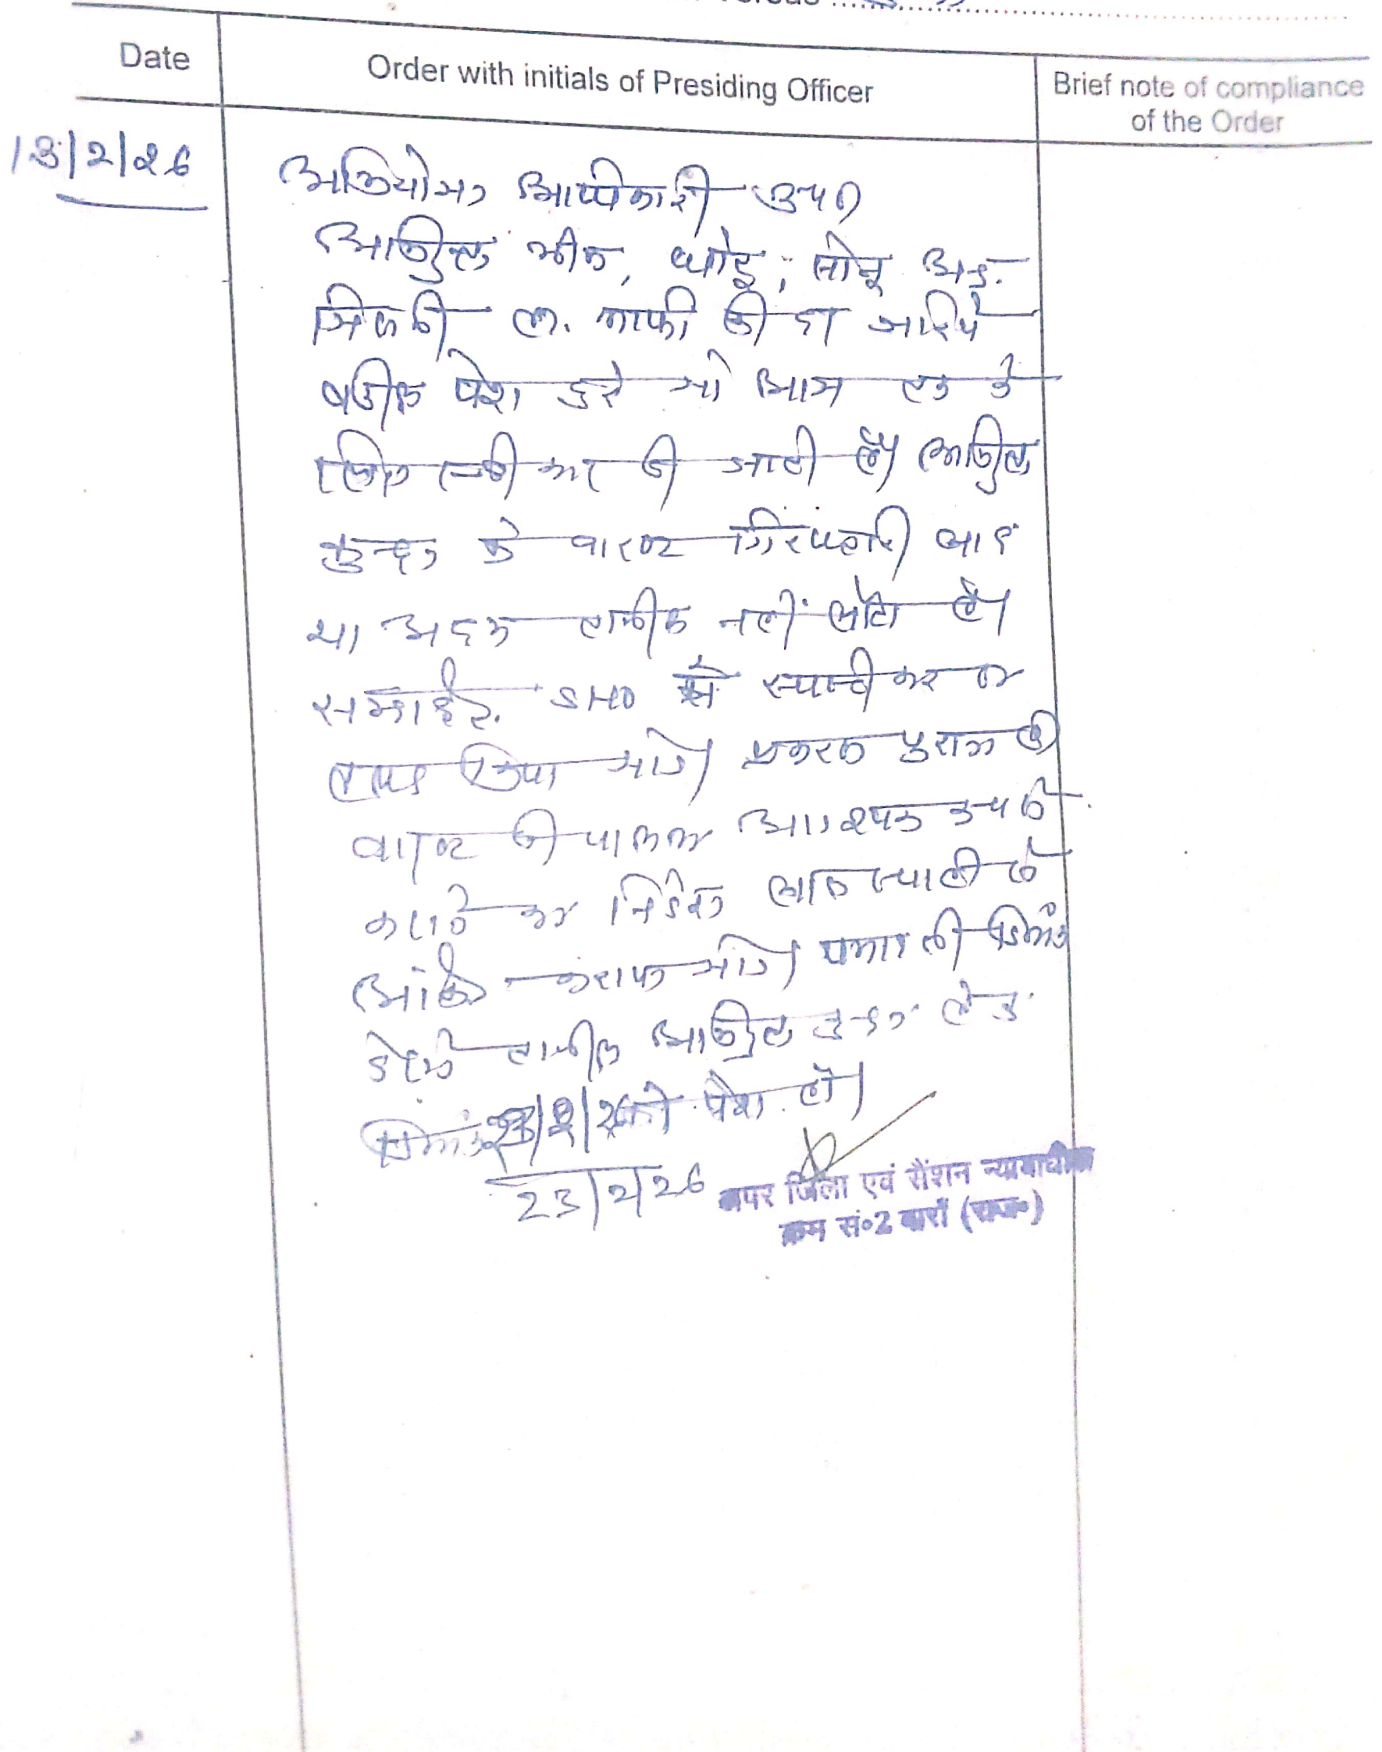 Date
Order with initials of Presiding Officer
Brief note of compliance
of the Order
13/2/26
अभियोजन अधिकारी उप०
अभियुक्त भीम, धोदू, सोनू अनु.
जिनकी ह. माफी की दर. जरिये
वकील पेश करे जो आज तक के
लिए स्वीकार की जाती है। अभियुक्त
कुन्दन के वारण्ट गिरफ्तारी बाद
या अदम तामील नहीं लौटा है।
संबंधित SHO से स्पष्टीकरण
तलब किया जावे। प्रकरण पुराना है
वारण्ट की पालना आवश्यक रूप से
कराने का निर्देश
कराया जावे। पत्रावली दिनांक
वास्ते तामील अभियुक्त कुन्दन हेतु
दिनांक 23/2/26 को पेश हो।
23/2/26
अपर जिला एवं सैशन न्यायाधीश
क्रम सं०2 बाराँ (राज०)